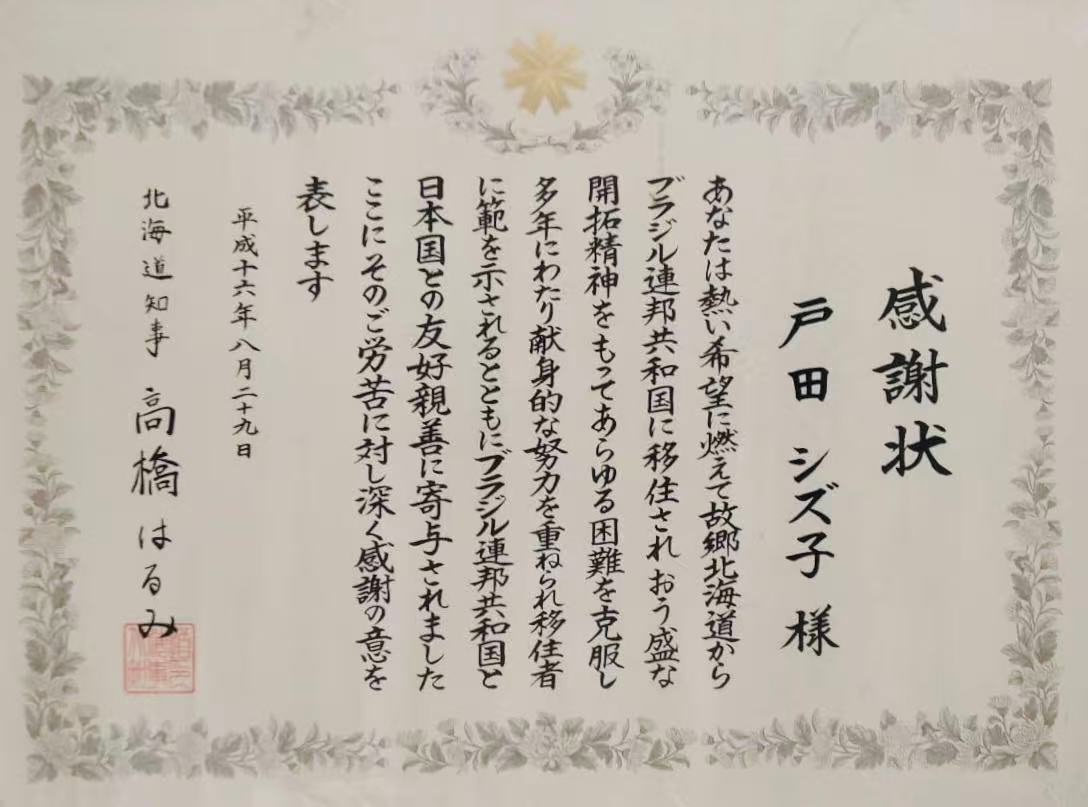 感謝状
戸田シズ子様
あなたは熱い希望に燃えて故郷北海道から
ブラジル連邦共和国に移住されおう盛な
開拓精神をもってあらゆる困難を克服し
多年にわたり献身的な努力を重ねられ移住者
に範を示されるとともにブラジル連邦共和国と
日本国との友好親善に寄与されました
ここにそのご労苦に対し深く感謝の意を
表します
平成十六年八月二十九日
北海道知事 高橋はるみ